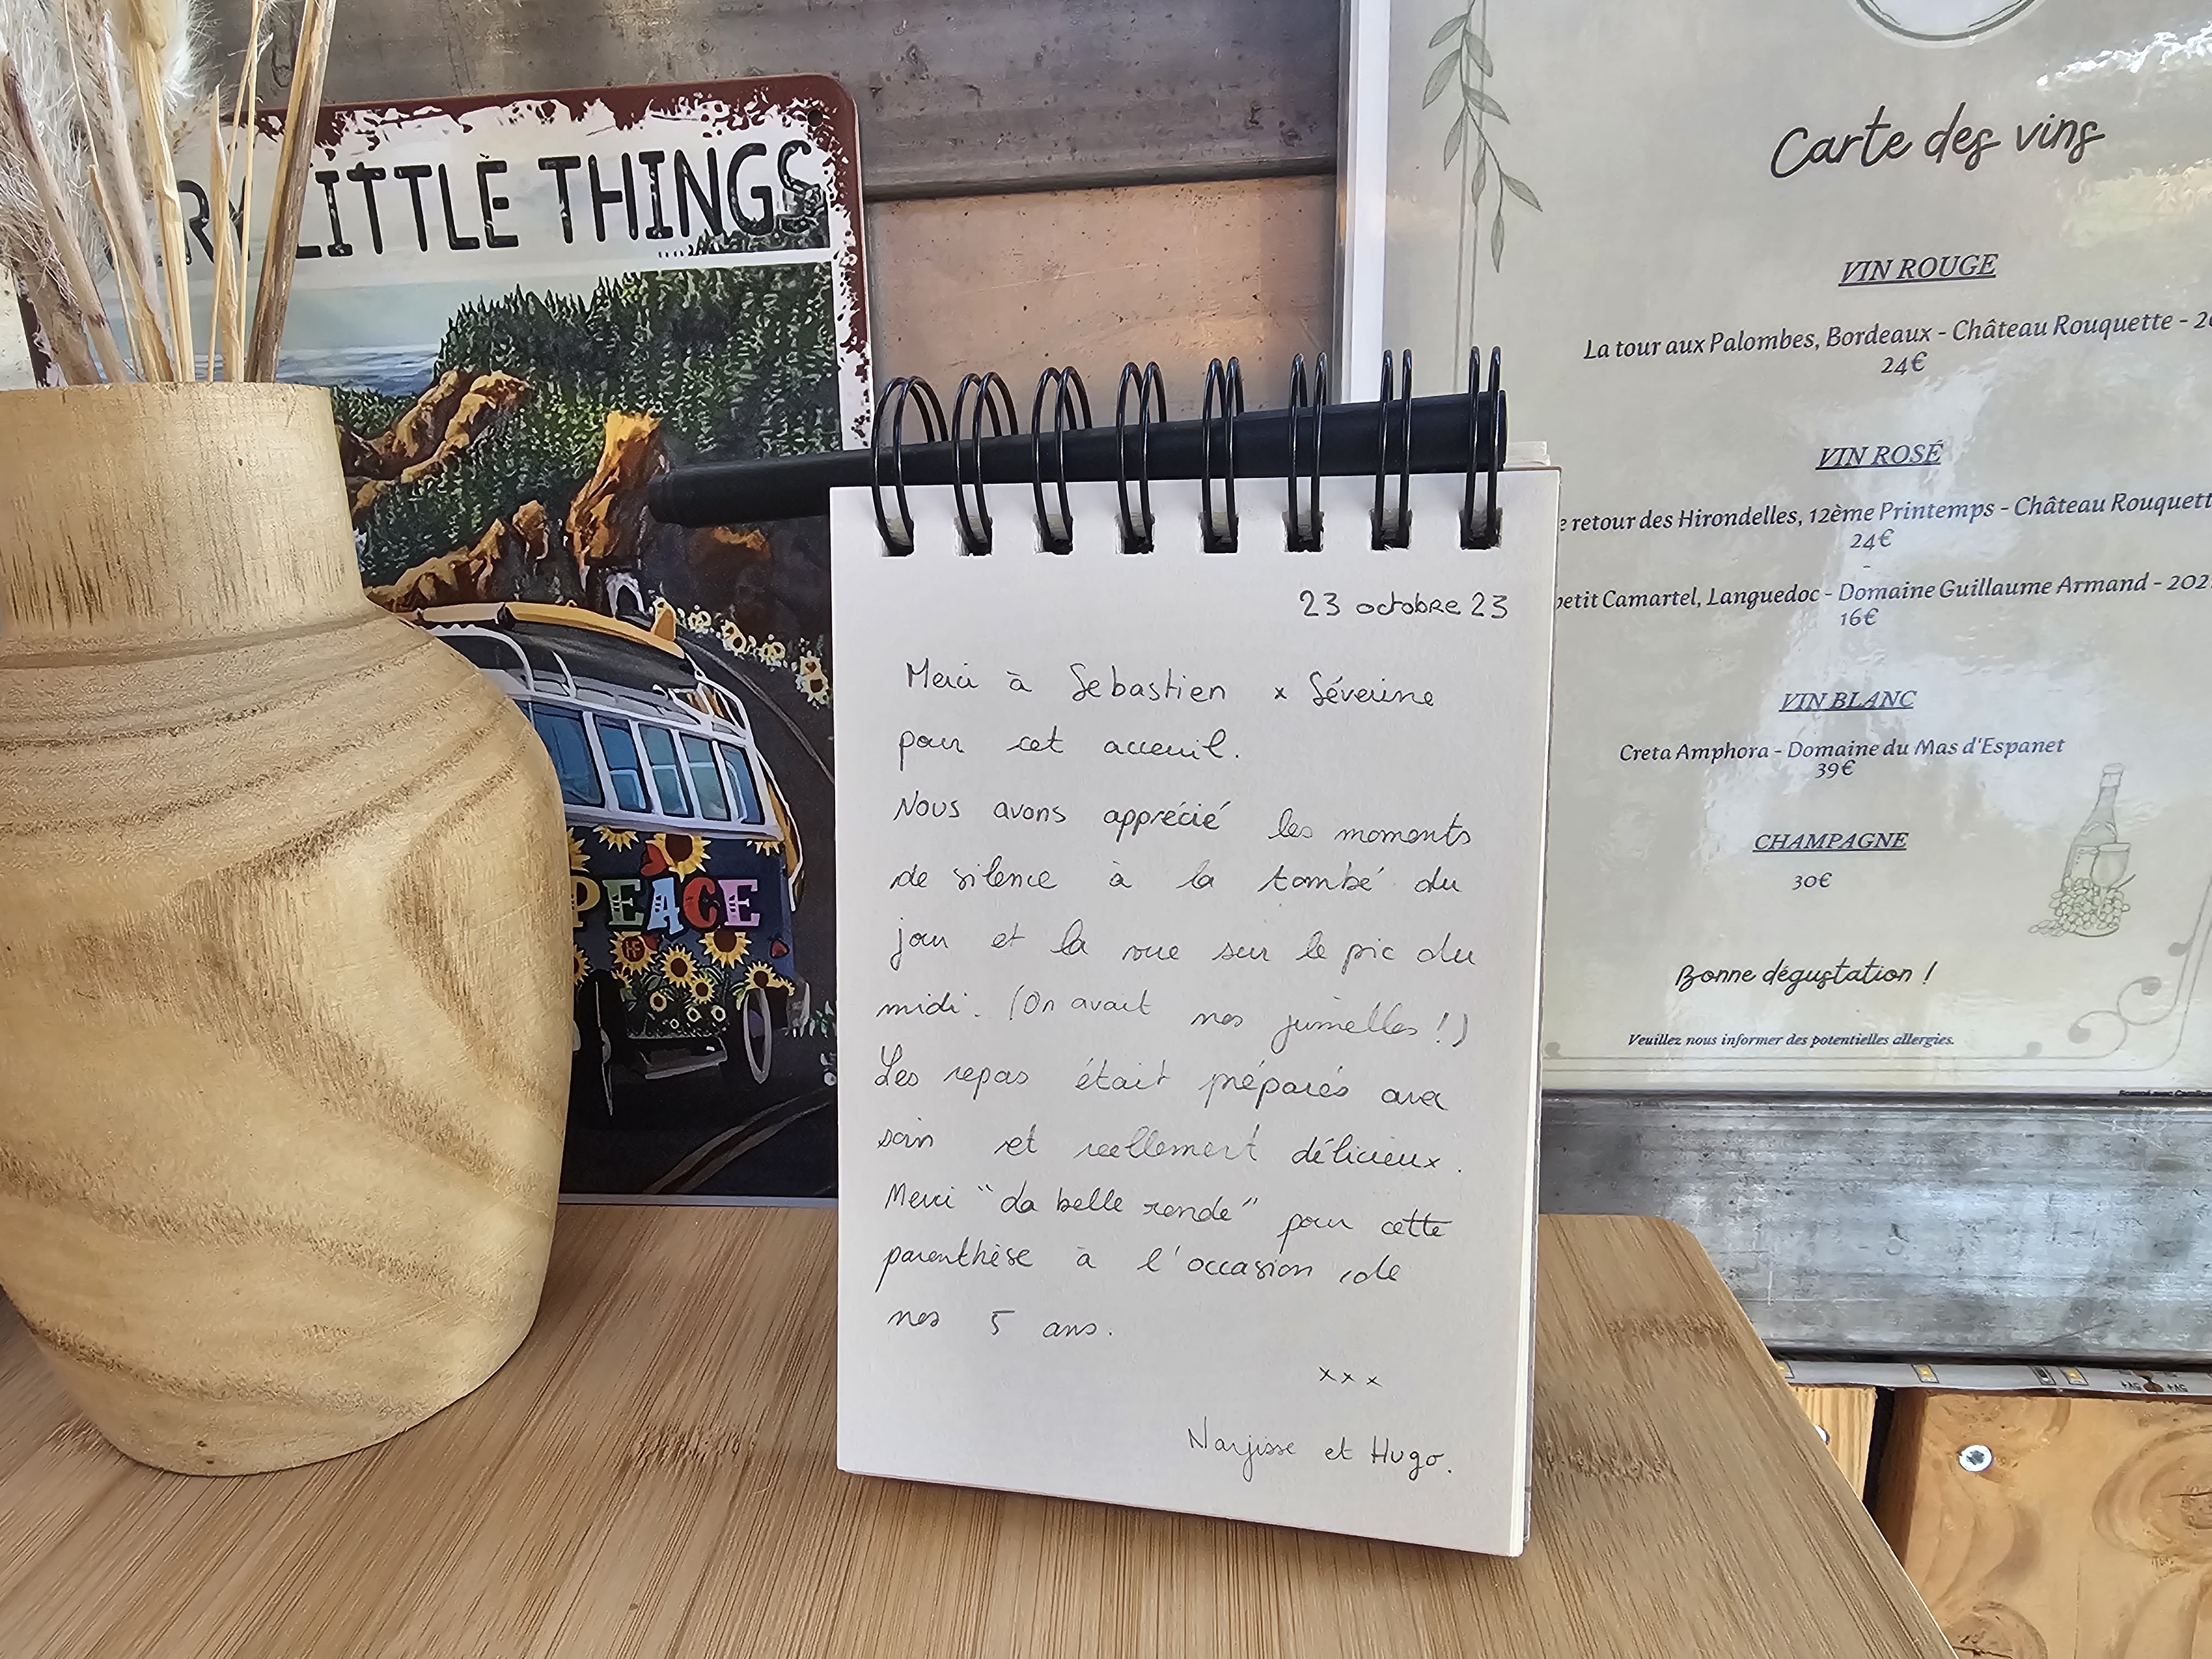 LITTLE THINGS
PEACE
23 octobre 23
Merci à Sebastien x Séverine
pour cet acceuil.
Nous avons apprécié les moments
de silence à la tombé du
jour et la vue sur le pic du
midi. (On avait nos jumelles !)
Les repas était préparés avec
soin et reellement délicieux.
Merci "La belle ronde" pour cette
parenthèse à l'occasion de
nos 5 ans.
xxx
Narjisse et Hugo.
Carte des vins
VIN ROUGE
La tour aux Palombes, Bordeaux - Château Rouquette -
24€
VIN ROSÉ
retour des Hirondelles, 12ème Printemps - Château Rouquett
24€
-
petit Camartel, Languedoc - Domaine Guillaume Armand - 202
16€
VIN BLANC
Creta Amphora - Domaine du Mas d'Espanet
39€
CHAMPAGNE
30€
Bonne dégustation !
Veuillez nous informer des potentielles allergies.